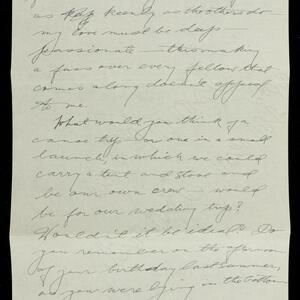 as keenly as the others do —
my love must be deep —
passionate — this making
a fuss over every fellow that
comes along doesn't appeal
to me.
What would you think of a
canoe trip — or one in a small
launch, in which we could
carry a tent and stove and
be our own crew — would
be for our wedding trip?
Would it be ideal? Do
you remember on the afternoon
of your birthday last summer,
as you were lying in the bottom